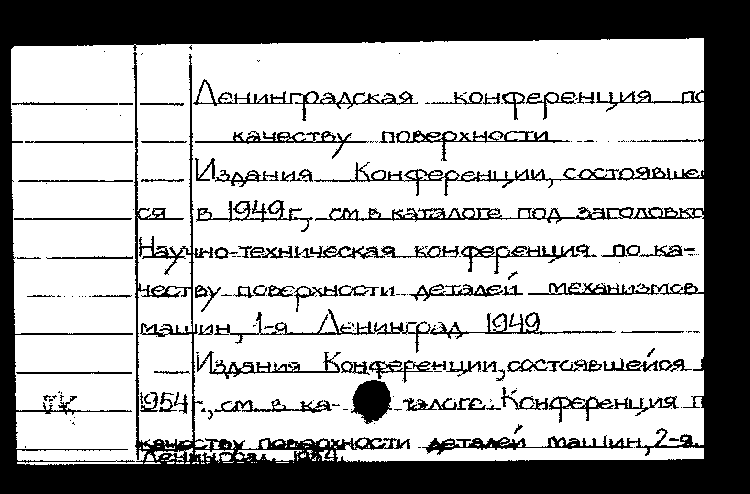 Ленинградская конференция по
качеству поверхности
Издания Конференции, состоявшей
ся в 1949 г., см. в каталоге под заголовко
Научно-техническая конференция по ка-
честву поверхности деталей механизмов
машин, 1-я. Ленинград 1949
Издания Конференции, состоявшейся в
1954 г., см. в ка- талоге: Конференция п
качеству поверхности деталей машин, 2-я.
Ленинград. 1954.